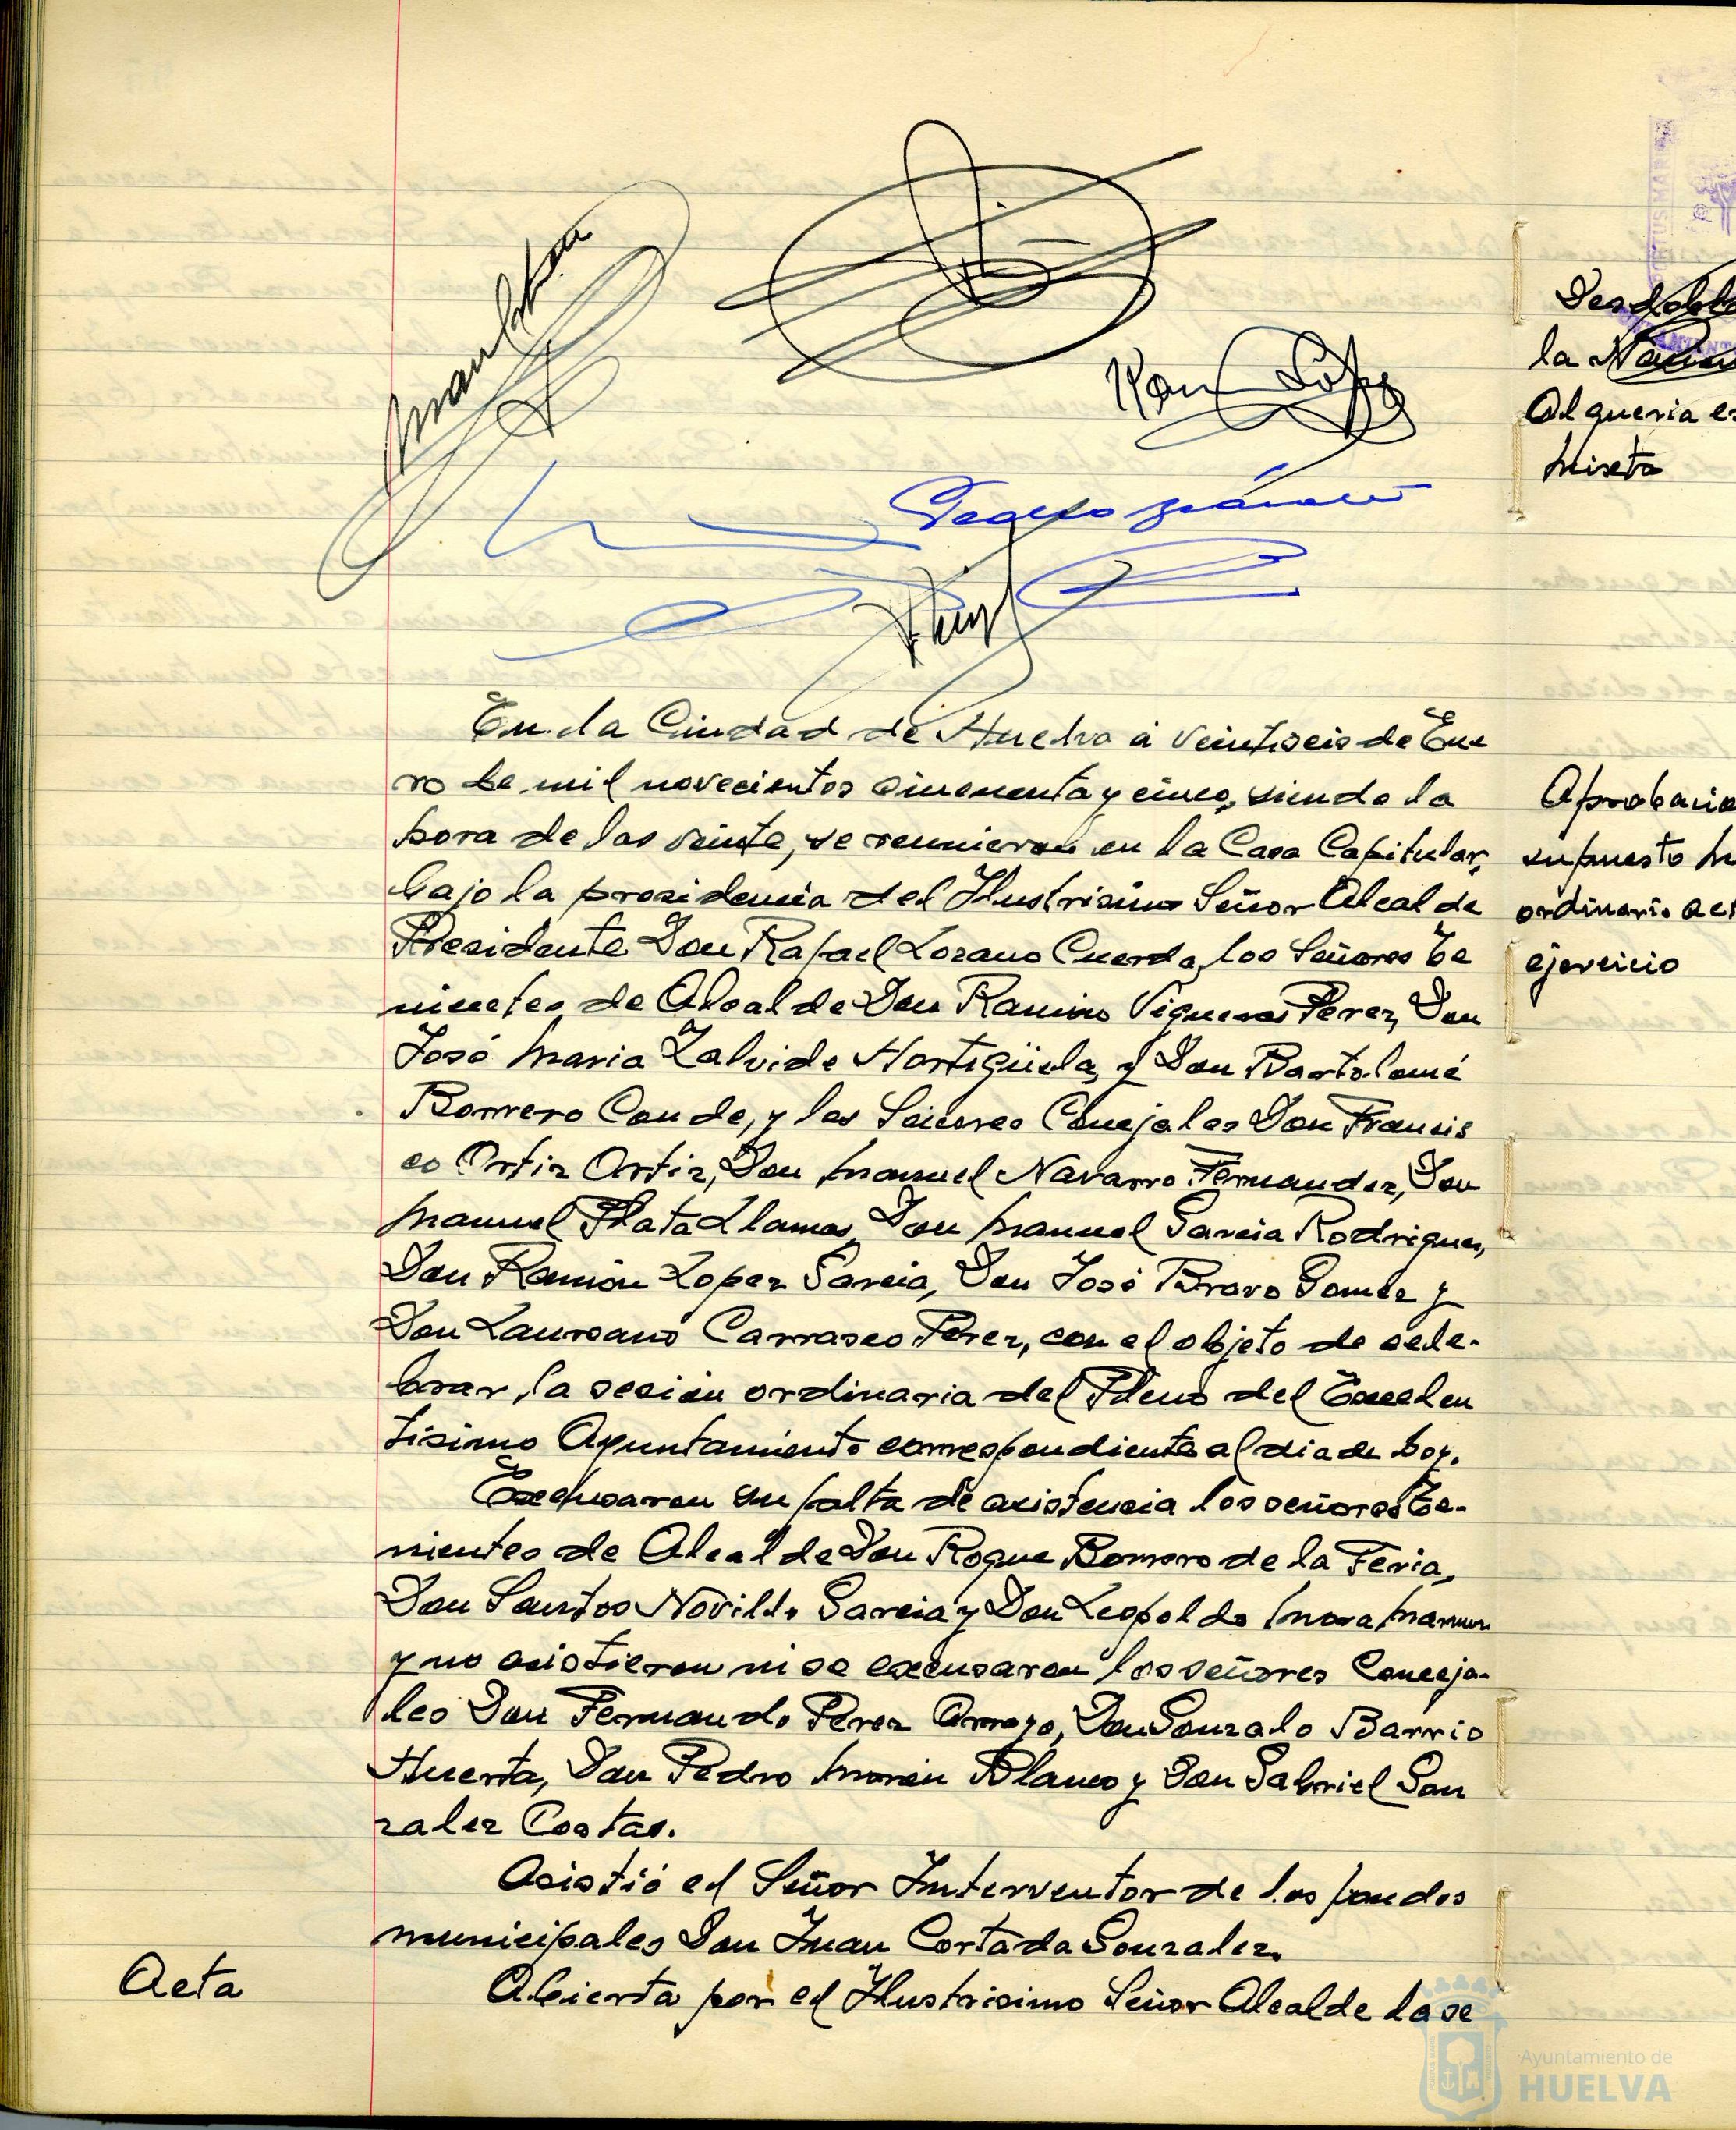 En la Ciudad de Huelva a veintiseis de Ene
ro de mil novecientos cincuenta y cinco, siendo la
hora de las veinte, se reunieron en la Casa Capitular,
bajo la presidencia del Ilustrisimo Señor Alcalde
Presidente Don Rafael Lozano Cuerda, los Señores Te
nientes de Alcalde Don Ramiro Vigueras Perez, Don
José Maria Zalvide Hortigüela, y Don Bartolomé
Romero Conde, y los Señores Concejales Don Francis
co Ortiz Ortiz, Don Manuel Navarro Fernandez, Don
Manuel Plata Llamas, Don Manuel Garcia Rodriguez,
Don Ramón Lopez Garcia, Don José Bravo Gomez y
Don Laureano Carrasco Perez, con el objeto de cele-
brar, la sesión ordinaria del Pleno del Excelen
tisimo Ayuntamiento correspondiente al dia de hoy.
Excusaron su falta de asistencia los señores Te-
nientes de Alcalde Don Roque Romero de la Feria,
Don Santos Novillo Garcia y Don Leopoldo Mora
y no asistieron ni se excusaron los señores Conceja-
les Don Fernando Perez Arroyo, Don Gonzalo Barrio
Huerta, Don Pedro Morón Blanco y Don Gabriel Gon
zalez Costas.
Asistió el Señor Interventor de los fondos
municipales Don Juan Cortada Gonzalez.
Acta
Abierta por el Ilustrisimo Señor Alcalde la se
la
Alqueria
Miseta
Aprobacio
supuesto
ordinario
ejercicio
Ayuntamiento de
HUELVA